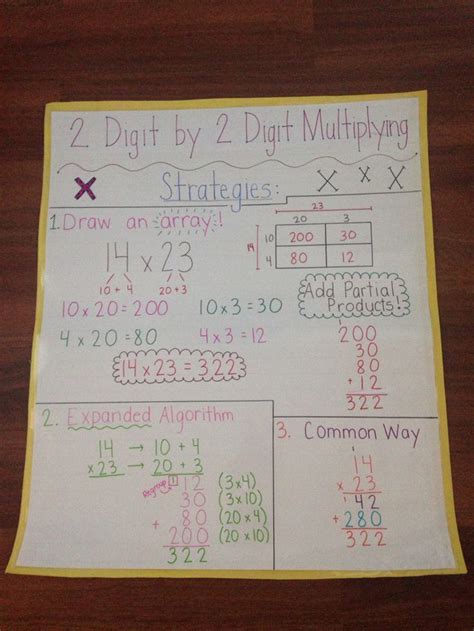 2 Digit by 2 Digit Multiplying
x Strategies: x x x
1. Draw an array!
23
20 3
14 10 200 30
4 80 12
14 x 23
10 + 4 20+3
10 x 20 = 200 10 x 3 = 30
4 x 20 = 80 4 x 3 = 12
14 x 23 = 322
Add Partial
Products!
200
30
80
+ 12
322
2. Expanded Algorithm
14 → 10 + 4
x 23 → 20 + 3
Regroup 1 12 (3x4)
30 (3x10)
80 (20x4)
+ 200 (20x10)
322
3. Common Way
1
14
x 23
1
42
+ 280
322